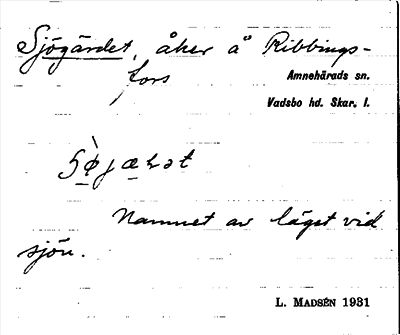 Sjögärdet, åker å Ribbings-
fors
Amnehärads sn.
Vadsbo hd. Skar. l.
Namnet av läget vid
sjön.
L. MADSÉN 1931